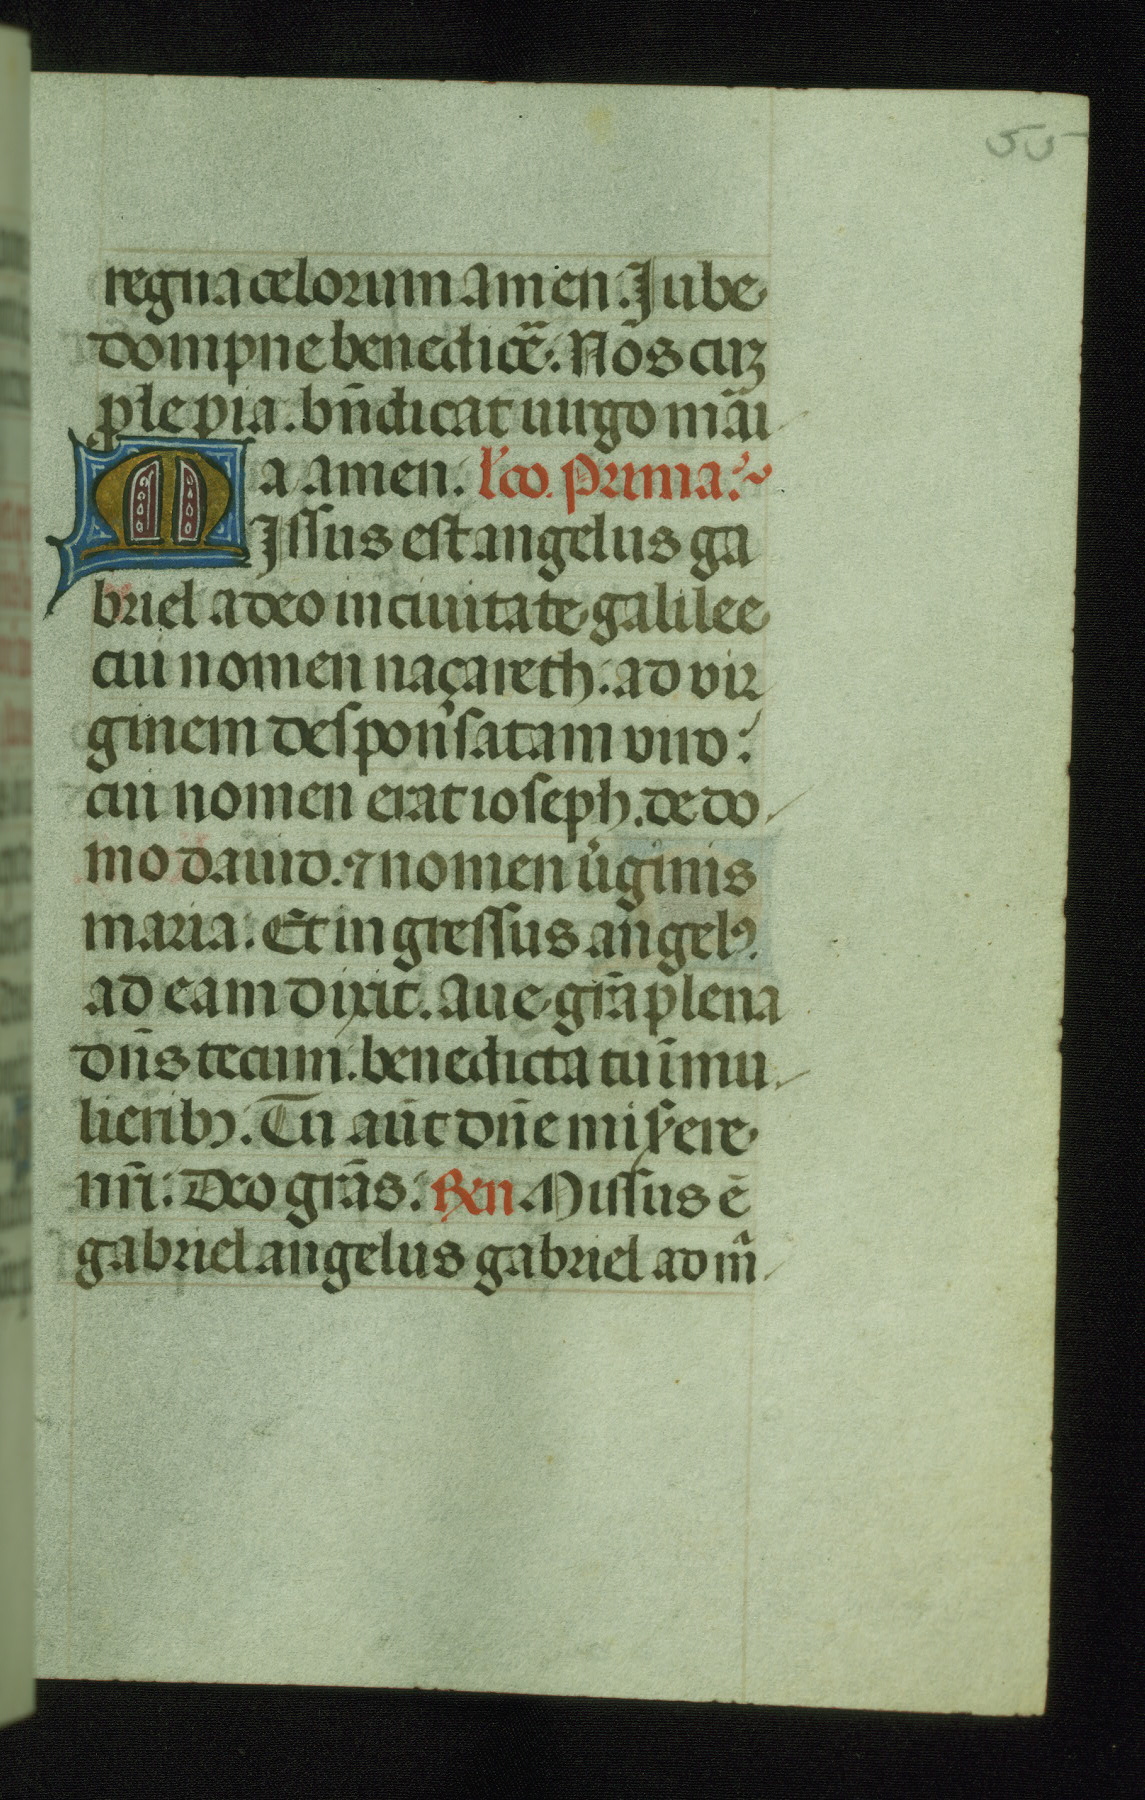 55
regna celorum Amen. Jube
dompne benedicẽ. Nõs cuʒ
ple pia. bñdicat uirgo mãi
a amen. lc̃o. prima.
MIssus est angelus ga
briel a deo in ciuitate galilee
cui nomen naçareth. ad vir
ginem desponsatam viro:
cui nomen erat ioseph. de do
mo dauid. ⁊ nomen ũginis
maria. Et ingressus angelꝰ.
ad eam dixit. Aue grã plena
dñs tecum. benedicta tu ĩ mu
lieribꝫ. Tu aũt dñe miserere
nr̃i. Deo grãs. Rẽn. Missus ẽ
gabriel angelus gabriel ad m̃